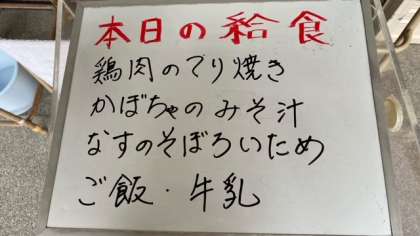 本日の給食
鶏肉のてり焼き
かぼちゃのみそ汁
なすのそぼろいため
ご飯・牛乳